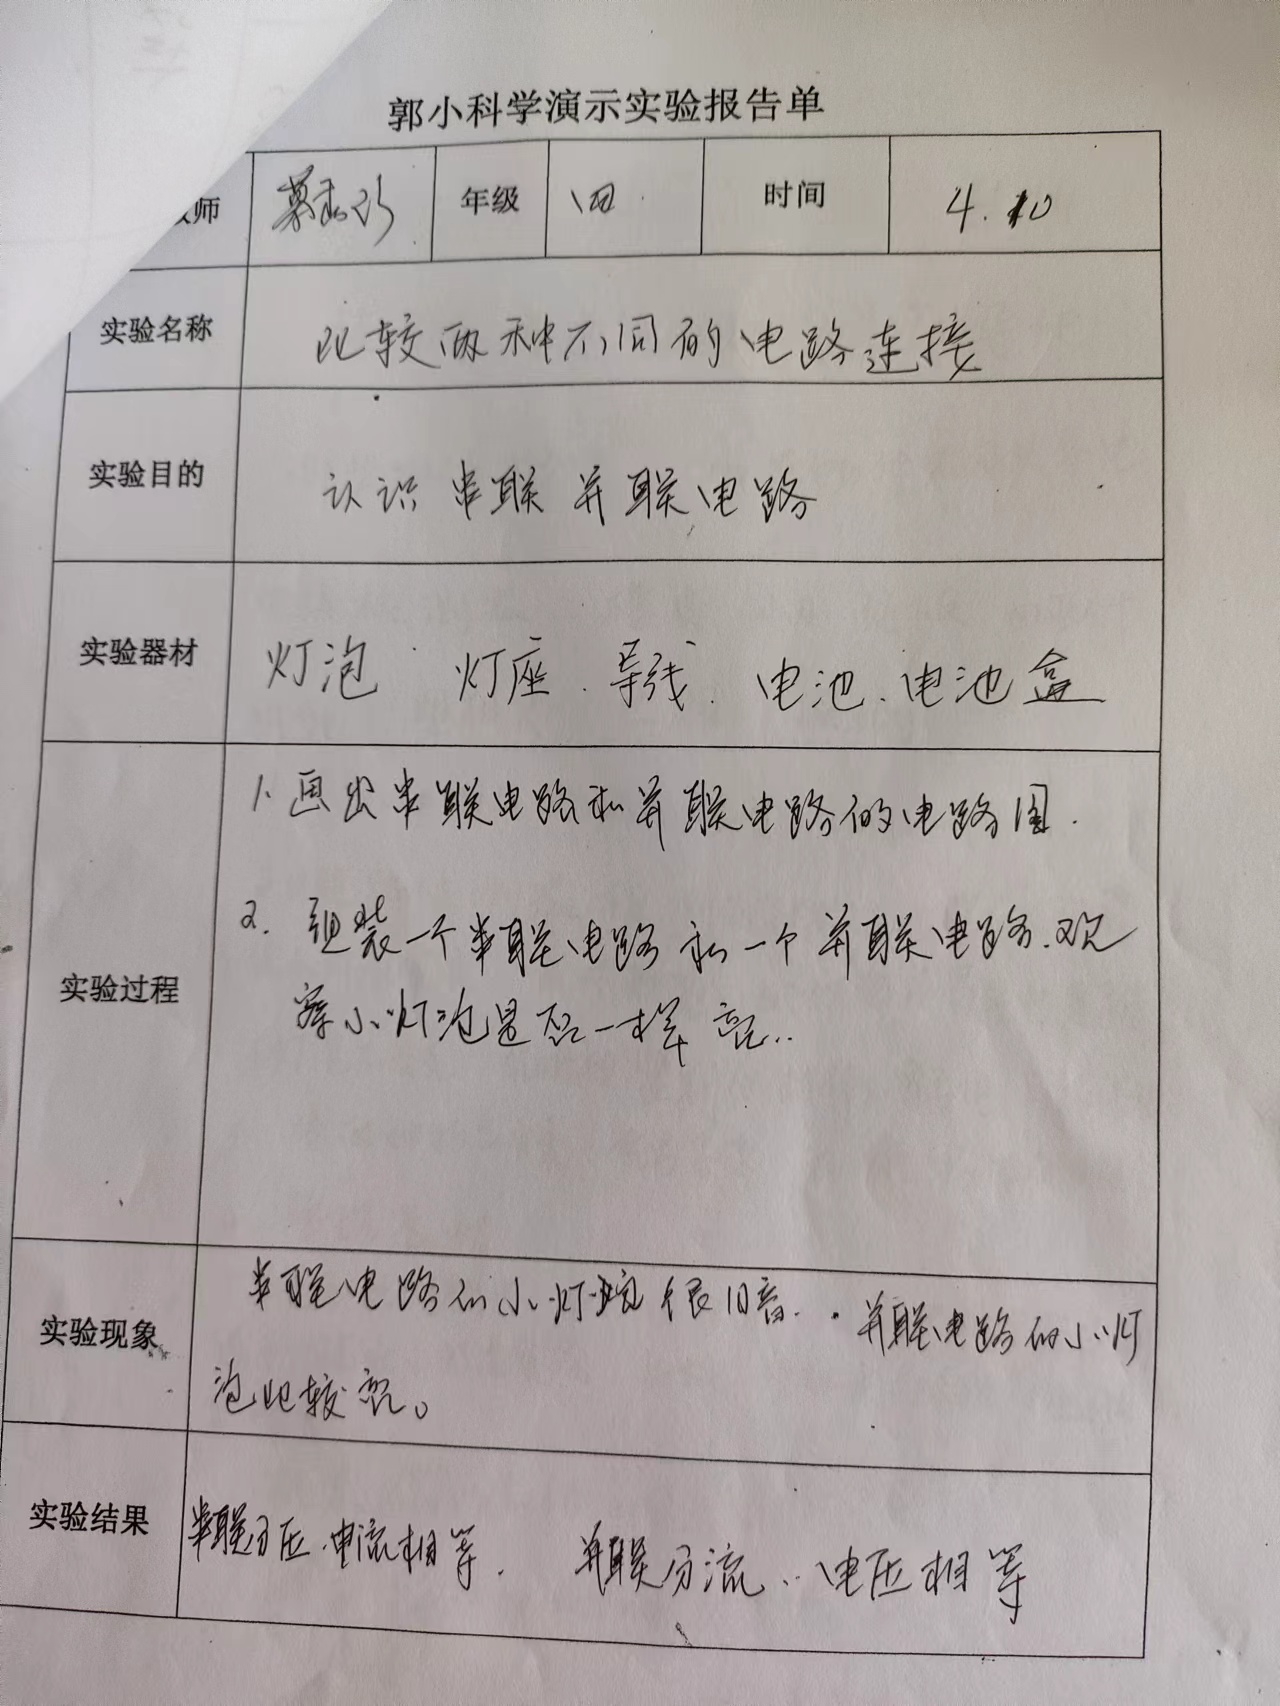 郭小科学演示实验报告单
师 年级 四 时间 4.10
实验名称 比较两种不同的电路连接
实验目的 认识串联并联电路
实验器材 灯泡 灯座、导线、电池、电池盒
1. 画出串联电路和并联电路的电路图.
2. 组装一个串联电路和一个并联电路.观
实验过程
察小灯泡是否一样亮..
串联电路的小灯泡很暗..并联电路的小灯
实验现象
泡比较亮。
实验结果 串联分压.电流相等. 并联分流..电压相等